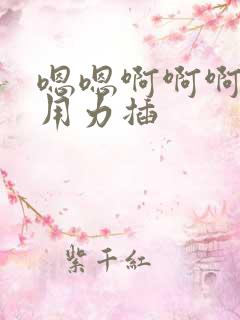 嗯嗯啊啊啊
用力插
紫千红